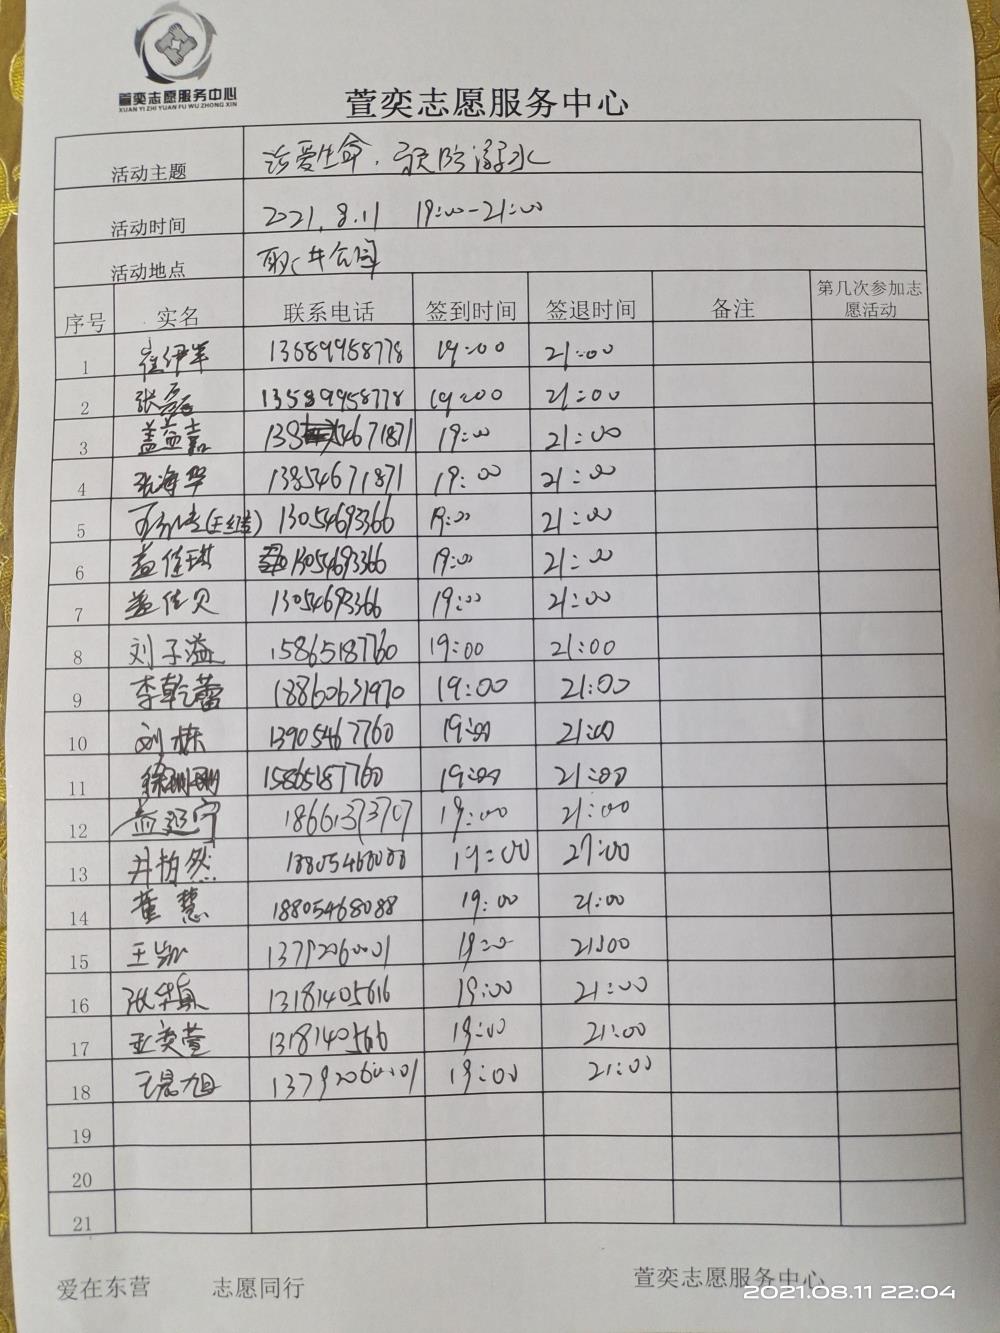 萱奕志愿服务中心
XUAN YI ZHI YUAN FU WU ZHONG XIN
萱奕志愿服务中心
活动主题 珍爱生命,预防溺水
活动时间 2021.8.11 19:00-21:00
活动地点
序号 实名 联系电话 签到时间 签退时间 备注 第几次参加志愿活动
1 崔伊笙 13589958778 19:00 21:00
2 张磊 13589958778 19:00 21:00
3 盖益嘉 13854671871 19:00 21:00
4 张海华 13854671871 19:00 21:00
5 13054693366 19:00 21:00
6 盖佳琪 13054693366 19:00 21:00
7 盖佳贝 13054693366 19:00 21:00
8 刘子溢 15865187760 19:00 21:00
9 李乾蕾 18860631970 19:00 21:00
10 刘栋 13905467760 19:00 21:00
11 徐珊珊 15865187760 19:00 21:00
12 18661373707 19:00 21:00
13 井柏然 18805468088 19:00 21:00
14 董慧 18805468088 19:00 21:00
15 王凯 13792060001 19:00 21:00
16 13181405616 19:00 21:00
17 1318140566 19:00 21:00
18 王晨旭 13792060001 19:00 21:00
19
20
21
爱在东营 志愿同行 萱奕志愿服务中心
2021.08.11 22:04